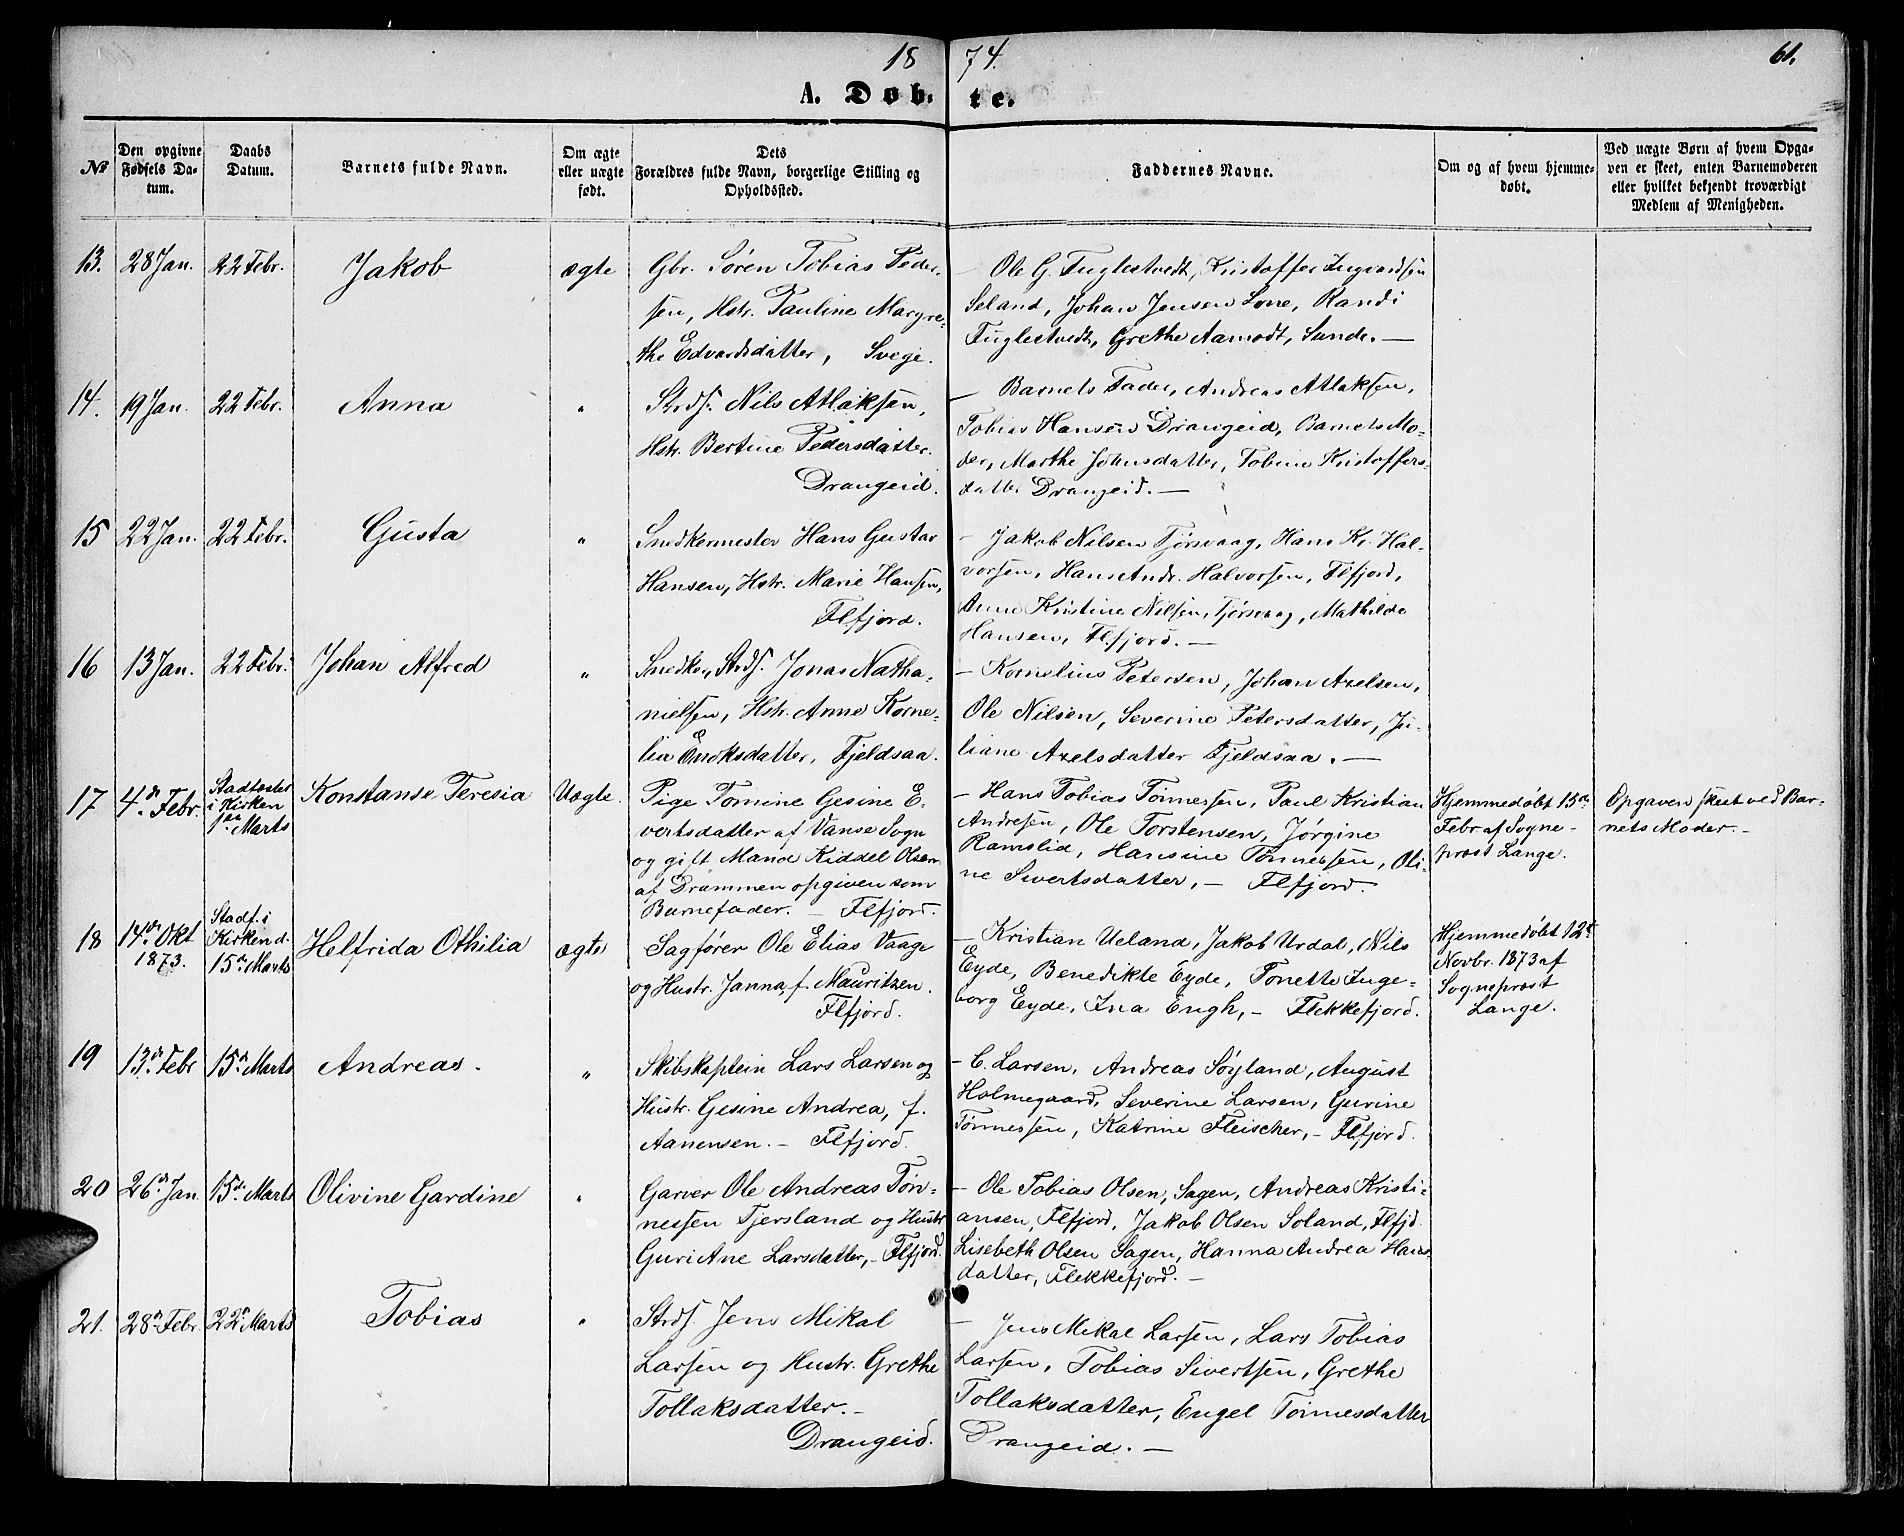 1874.
61.
A. Døbte.
No
Den opgivne Fødsels Datum.
Daabs Datum.
Barnets fulde Navn.
Om ægte eller uægte født.
Dets Forældres fulde Navn, borgerlige Stilling og Opholdssted.
Faddernes Navne.
Om og af hvem hjemmedøbt.
Ved uægte Børn af hvem Opgaven er skeet, enten Barnemoderen eller hvilket bekjendt troværdigt Medlem af Menigheden.
13. 28 Jan. 22 Febr. Jakob ægte
Gbr. Søren Tobias Peder-
sen, Hstr. Pauline Margre-
the Edvardsdatter, Svege.
— Ole G. Fuglestvedt, Kristoffer Ingvardsen
Seland, Johan Jensen Lone, Randi
Fuglestvedt, Grethe Aamodt, Sunde. —
14. 19 Jan. 22 Febr. Anna "
Strds. Nils Atlaksen,
Hstr. Bertine Pedersdatter.
Drangeid.
— Barnets Fader, Andreas Atlaksen,
Tobias Hansen Drangeid, Barnets Mo-
der, Marthe Johnsdatter, Tobine Kristoffers-
datter Drangeid. —
15 22 Jan. 22 Febr. Gusta "
Snedkermester Hans Gustav
Hansen, Hstr. Marie Hansen,
Flfjord.
— Jakob Nilsen Tjørsvaag, Hans Kr. Hal-
vorsen, Hans Andr. Halvorsen, Flfjord,
Anne Kristine Nilsen, Tjørsvaag, Mathilde
Hansen, Flfjord. —
16 13 Jan. 22 Febr. Johan Alfred "
Snedker, Strds. Jonas Natha-
nielsen, Hstr. Anne Korne-
lia Enoksdatter, Fjeldsaa.
— Kornelius Petersen, Johan Axelsen,
Ole Nilsen, Severine Petersdatter, Ju-
liane Axelsdatter Fjeldsaa. —
17 4de Febr. Stadfæstet
i Kirken
1ste Marts
Konstanse Teresia Uægte.
Pige Tomine Gesine E-
vertsdatter af Vanse Sogn
og gift Mand Kiddel Olsen
af Drammen opgiven som
Barnefader. — Flfjord.
— Hans Tobias Tønnessen, Paul Kristian
Andresen, Ole Torstensen, Jørgine
Ramslid, Hansine Tønnessen, Oli-
ne Sivertsdatter, — Flfjord.
Hjemmedøbt 15de
Febr af Sogne-
prøst Lange.
Opgaven skeet ved Bar-
nets Moder. —
18 14de Okt
1873.
Stadf. i
Kirken d.
15de Marts
Helfrida Othilia ægte
Sagfører Ole Elias Vaage
og Hustr. Janna, f. Mauritzen.
Flfjord.
— Kristian Ueland, Jakob Urdal, Nils
Eyde, Benedikte Eyde, Tonette Inge-
borg Eyde, Ina Engh, — Flekkefjord.
Hjemmedøbt 12te
Novbr. 1873 af
Sogneprøst
Lange.
19 13de Febr 15de Marts Andreas. "
Skibskaptein Lars Larsen og
Hustr. Gesine Andrea, f.
Aanensen. — Flfjord.
— C. Larsen, Andreas Søyland, August
Holmegaard, Severine Larsen, Gurine
Tønnessen, Katrine Fleischer, — Flfjord.
20 26de Jan. 15de Marts Olivine Gardine "
Garver Ole Andreas Tøn-
nessen Tjersland og Hustr.
Guri Ane Larsdatter, — Flfjord.
— Ole Tobias Olsen, Sagen, Andreas Kristi-
ansen, Flfjord, Jakob Olsen Soland, Flfjd.
Lisebeth Olsen Sagen, Hanna Andrea Hans-
datter, Flekkefjord. —
21. 28de Febr. 22de Marts Tobias "
Strds. Jens Mikal
Larsen og Hustr. Grethe
Tollaksdatter. —
Drangeid.
— Jens Mikal Larsen, Lars Tobias
Larsen, Tobias Sivertsen, Grethe
Tollaksdatter, Engel Tønnesdatter
Drangeid. —